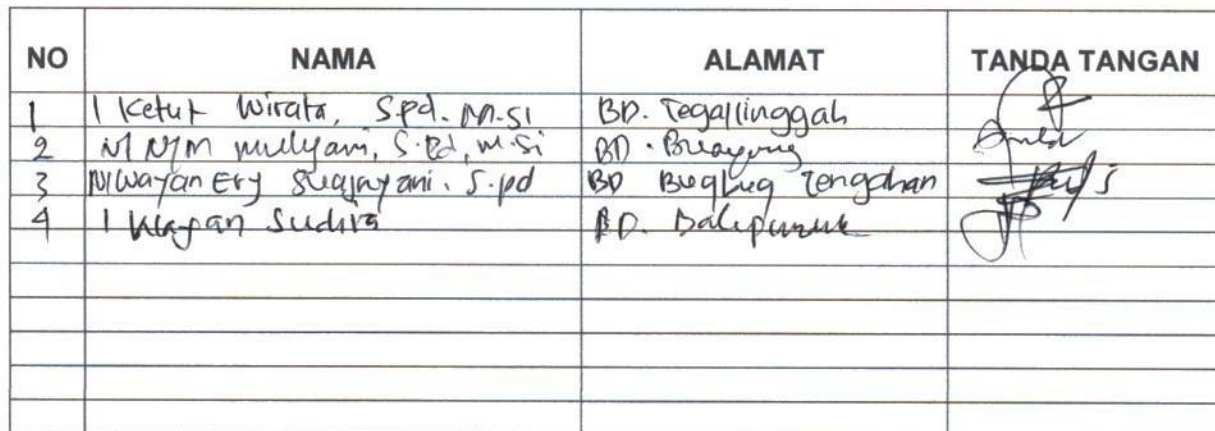 NO NAMA ALAMAT TANDA TANGAN
1 I Ketut Wirata, S.pd. M.Si BD. Tegallinggah
2 Ni Nym mulyani, S.Pd, M.Si BD.
3 Ni Wayan Ery S.pd BD Bugbug Tengahan
4 I Wayan Sudira BD. Balepunduk